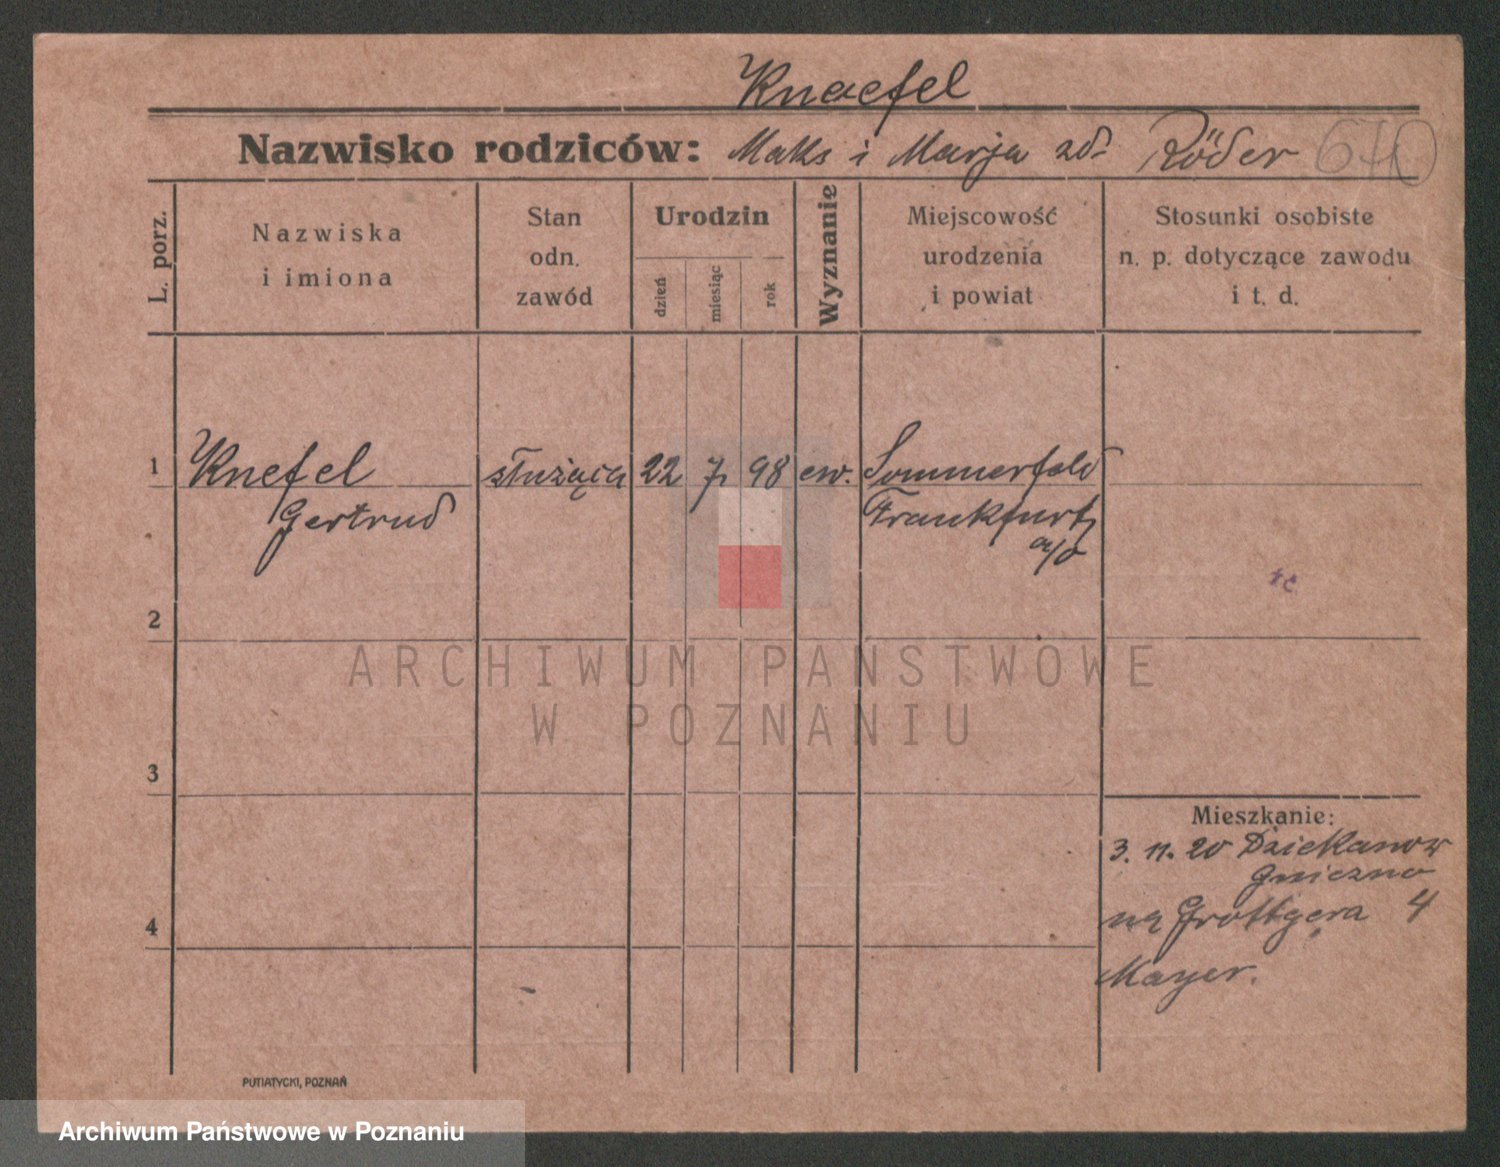 Knaefel
Nazwisko rodziców: Maks i Marja zd. Röder 670
L. porz.
Nazwiska
i imiona
Stan
odn.
zawód
Urodzin
dzień
miesiąc
rok
Wyznanie
Miejscowość
urodzenia
i powiat
Stosunki osobiste
n. p. dotyczące zawodu
i t. d.
1 Knefel służąca 22 7 98 ew. Sommerfeld
Gertrud Frankfurt
a/O
2
ARCHIWUM PAŃSTWOWE
W POZNANIU
3
Mieszkanie:
3. 11. 20 Dziekanow
Gniezno
na Grottgera 4
4
Mayer.
PUTIATYCKI, POZNAŃ
Archiwum Państwowe w Poznaniu